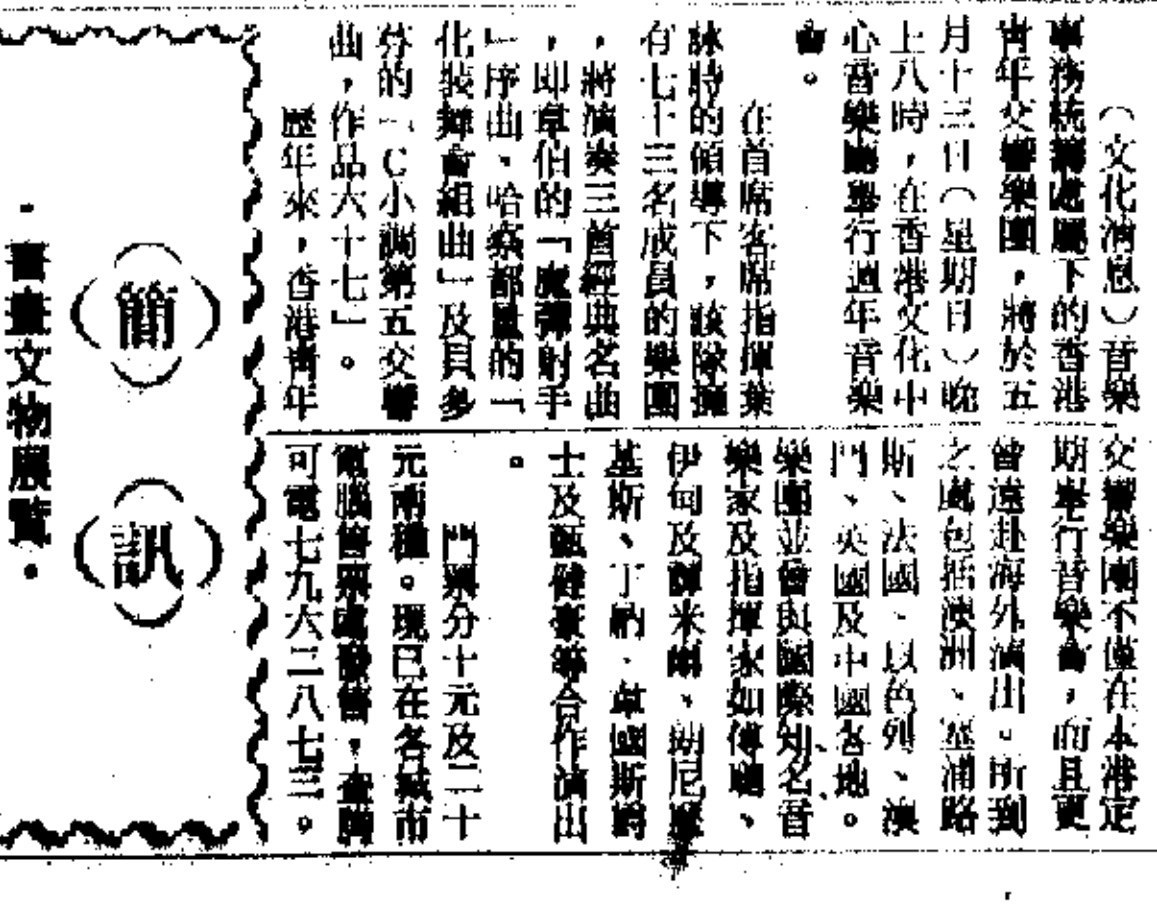 （文化消息）音樂
事務統籌處屬下的香港
青年交響樂團，將於五
月十三日（星期日）晚
上八時，在香港文化中
心音樂廳舉行週年音樂
會。
在首席客席指揮葉
詠詩的領導下，該隊擁
有七十三名成員的樂團
，將演奏三首經典名曲
，即韋伯的「魔彈射手
」序曲、哈察都量的「
化裝舞會組曲」及貝多
芬的「C小調第五交響
曲，作品六十七」。
歷年來，香港青年
交響樂團不僅在本港定
期舉行音樂會，而且更
曾遠赴海外演出。所到
之處包括澳洲、塞浦路
斯、法國、以色列、澳
門、英國及中國各地。
樂團並曾與國際知名音
樂家及指揮家如傅聰、
伊甸及譚米爾、胡尼
基斯、丁納·韋國斯爵
士及甄健豪等合作演出
。
門票分十元及二十
元兩種。現已在各城市
電腦售票處發售，查詢
可電七九六二八七三。
簡訊
·書畫文物展覽·